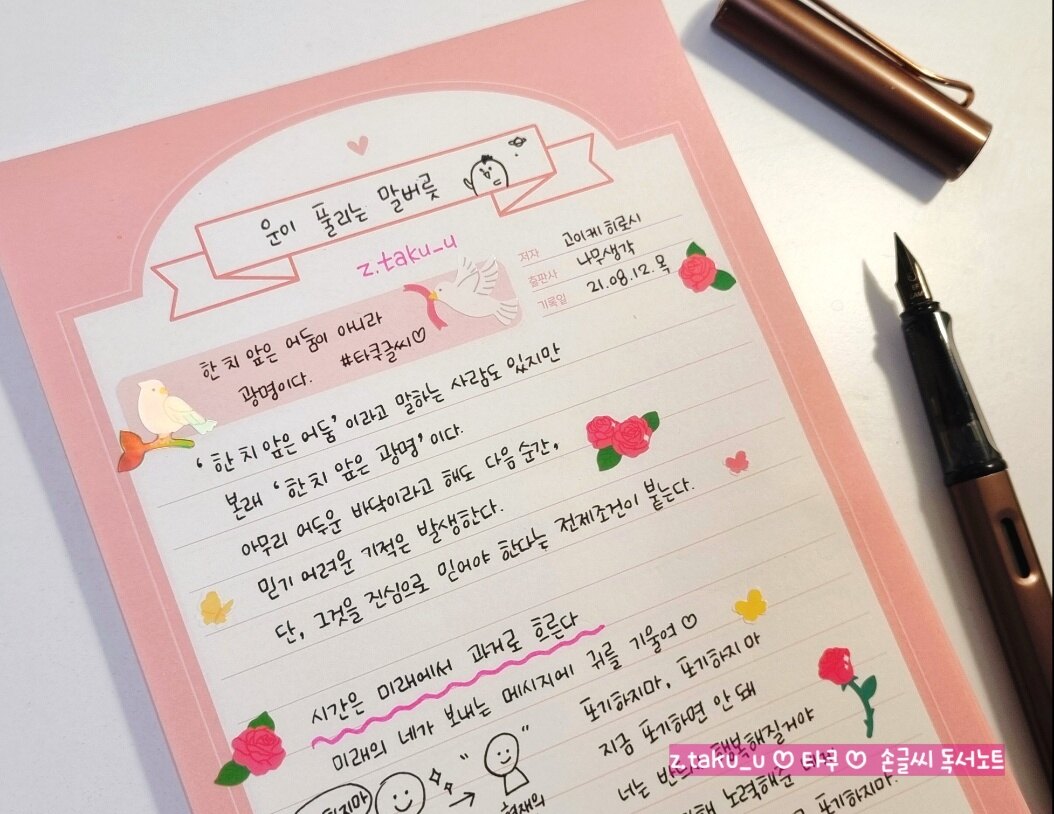 운이 풀리는 말버릇
z.taku_u
저자 고이케 히로시
출판사 나무생각
기록일 21.08.12.목
한 치 앞은 어둠이 아니라
광명이다. #타쿠글씨♡
'한 치 앞은 어둠'이라고 말하는 사람도 있지만
본래 '한 치 앞은 광명'이다.
아무리 어두운 바닥이라고 해도 다음 순간,
믿기 어려운 기적은 발생한다.
단, 그것을 진심으로 믿어야 한다는 전제조건이 붙는다.
시간은 미래에서 과거로 흐른다
미래의 네가 보내는 메시지에 귀를 기울여 ♡
포기하지마, 포기하지마
지금 포기하면 안 돼
너는 행복해질거야
노력해준
포기하지마.
현재의
z.taku_u ♡ 타쿠 ♡ 손글씨 독서노트